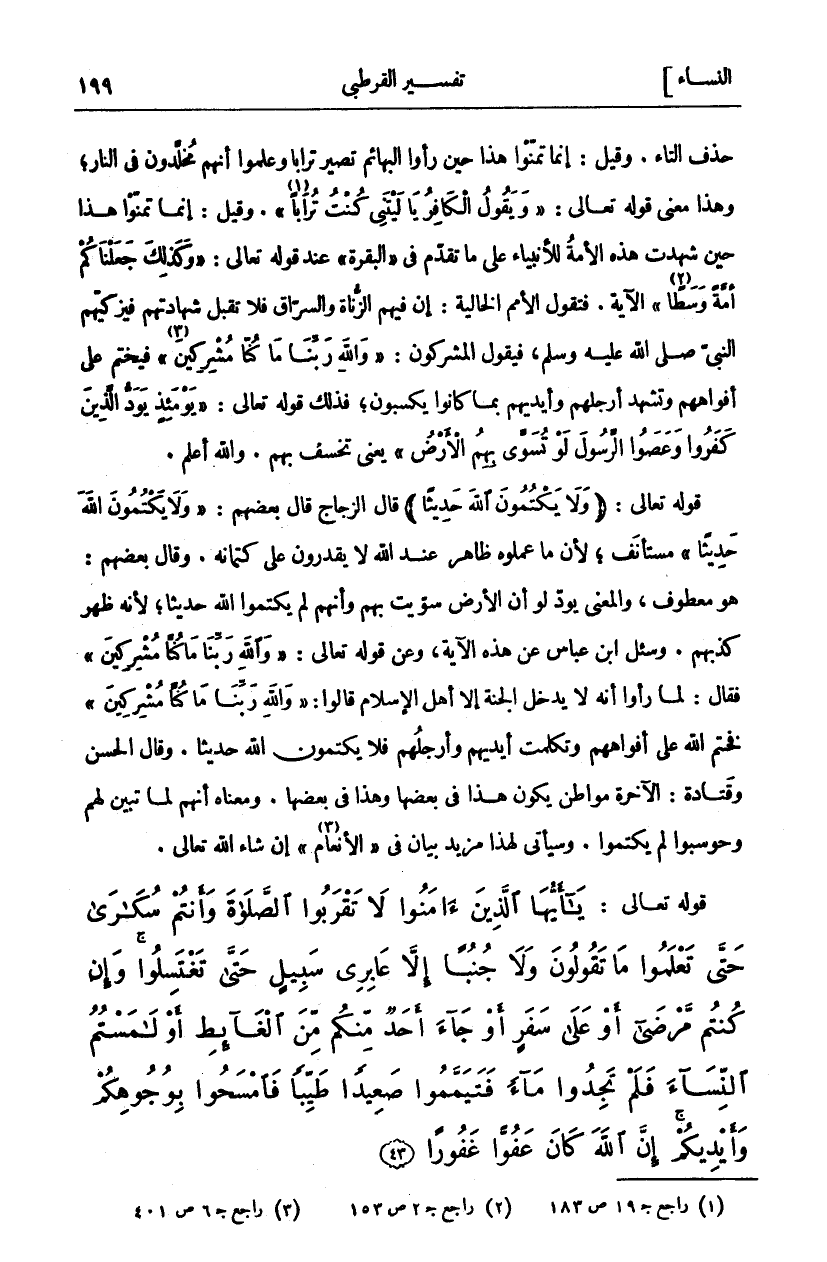 النساء ] تفسير القرطبي ١٩٩
حذف التاء . وقيل : إنما تمنّوا هذا حين رأوا البهائم تصير ترابا وعلموا أنهم مُخلَّدون فى النار؛
وهذا معنى قوله تعالى : « وَيَقُولُ الْكَافِرُ يَا لَيْتَنِي كُنْتُ تُرَابًا (١) » . وقيل : إنما تمنّوا هذا
حين شهدت هذه الأمةُ للأنبياء على ما تقدّم فى «البقرة» عند قوله تعالى : «وَكَذَلِكَ جَعَلْنَاكُمْ
أُمَّةً وَسَطًا (٢) » الآية . فتقول الأمم الخالية : إن فيهم الزُّناة والسرّاق فلا تقبل شهادتهم فيزكيّهم
النبيّ صلى الله عليه وسلم، فيقول المشركون : « وَاللَّهِ رَبِّنَا مَا كُنَّا مُشْرِكِينَ (٣) » فيختم على
أفواههم وتشهد أرجلهم وأيديهم بما كانوا يكسبون؛ فذلك قوله تعالى : «يَوْمَئِذٍ يَوَدُّ الَّذِينَ
كَفَرُوا وَعَصَوُا الرَّسُولَ لَوْ تُسَوَّى بِهِمُ الْأَرْضُ » يعنى تخسف بهم . والله أعلم .
قوله تعالى : ﴿ وَلَا يَكْتُمُونَ ٱللَّهَ حَدِيثًا ﴾ قال الزجاج قال بعضهم : « وَلَا يَكْتُمُونَ اللَّهَ
حَدِيثًا » مستأنَف ؛ لأن ما عملوه ظاهر عند الله لا يقدرون على كتمانه . وقال بعضهم :
هو معطوف ، والمعنى يودّ لو أن الأرض سوّيت بهم وأنهم لم يكتموا الله حديثا؛ لأنه ظهر
كذبهم . وسئل ابن عباس عن هذه الآية، وعن قوله تعالى : « وَٱللَّهِ رَبِّنَا مَا كُنَّا مُشْرِكِينَ »
فقال : لما رأوا أنه لا يدخل الجنة إلا أهل الإسلام قالوا: « وَاللَّهِ رَبِّنَا مَا كُنَّا مُشْرِكِينَ »
فختم الله على أفواههم وتكلمت أيديهم وأرجلُهم فلا يكتمون الله حديثا . وقال الحسن
وقتادة : الآخرة مواطن يكون هذا فى بعضها وهذا فى بعضها . ومعناه أنهم لما تبين لهم
وحوسبوا لم يكتموا . وسيأتى لهذا مزيد بيان فى « الأنعام (٣) » إن شاء الله تعالى .
قوله تعالى : يَـٰٓأَيُّهَا ٱلَّذِينَ ءَامَنُوا لَا تَقْرَبُوا ٱلصَّلَوٰةَ وَأَنتُمْ سُكَـٰرَىٰ
حَتَّىٰ تَعْلَمُوا مَا تَقُولُونَ وَلَا جُنُبًا إِلَّا عَابِرِى سَبِيلٍ حَتَّىٰ تَغْتَسِلُوا ۚ وَإِن
كُنتُم مَّرْضَىٰٓ أَوْ عَلَىٰ سَفَرٍ أَوْ جَآءَ أَحَدٌ مِّنكُم مِّنَ ٱلْغَآئِطِ أَوْ لَـٰمَسْتُمُ
ٱلنِّسَآءَ فَلَمْ تَجِدُوا مَآءً فَتَيَمَّمُوا صَعِيدًا طَيِّبًا فَٱمْسَحُوا بِوُجُوهِكُمْ
وَأَيْدِيكُمْ ۚ إِنَّ ٱللَّهَ كَانَ عَفُوًّا غَفُورًا ﴿٤٣﴾
(١) راجع جـ ١٩ ص ١٨٣ (٢) راجع جـ ٢ ص ١٥٣ (٣) راجع جـ ٦ ص ٤٠١